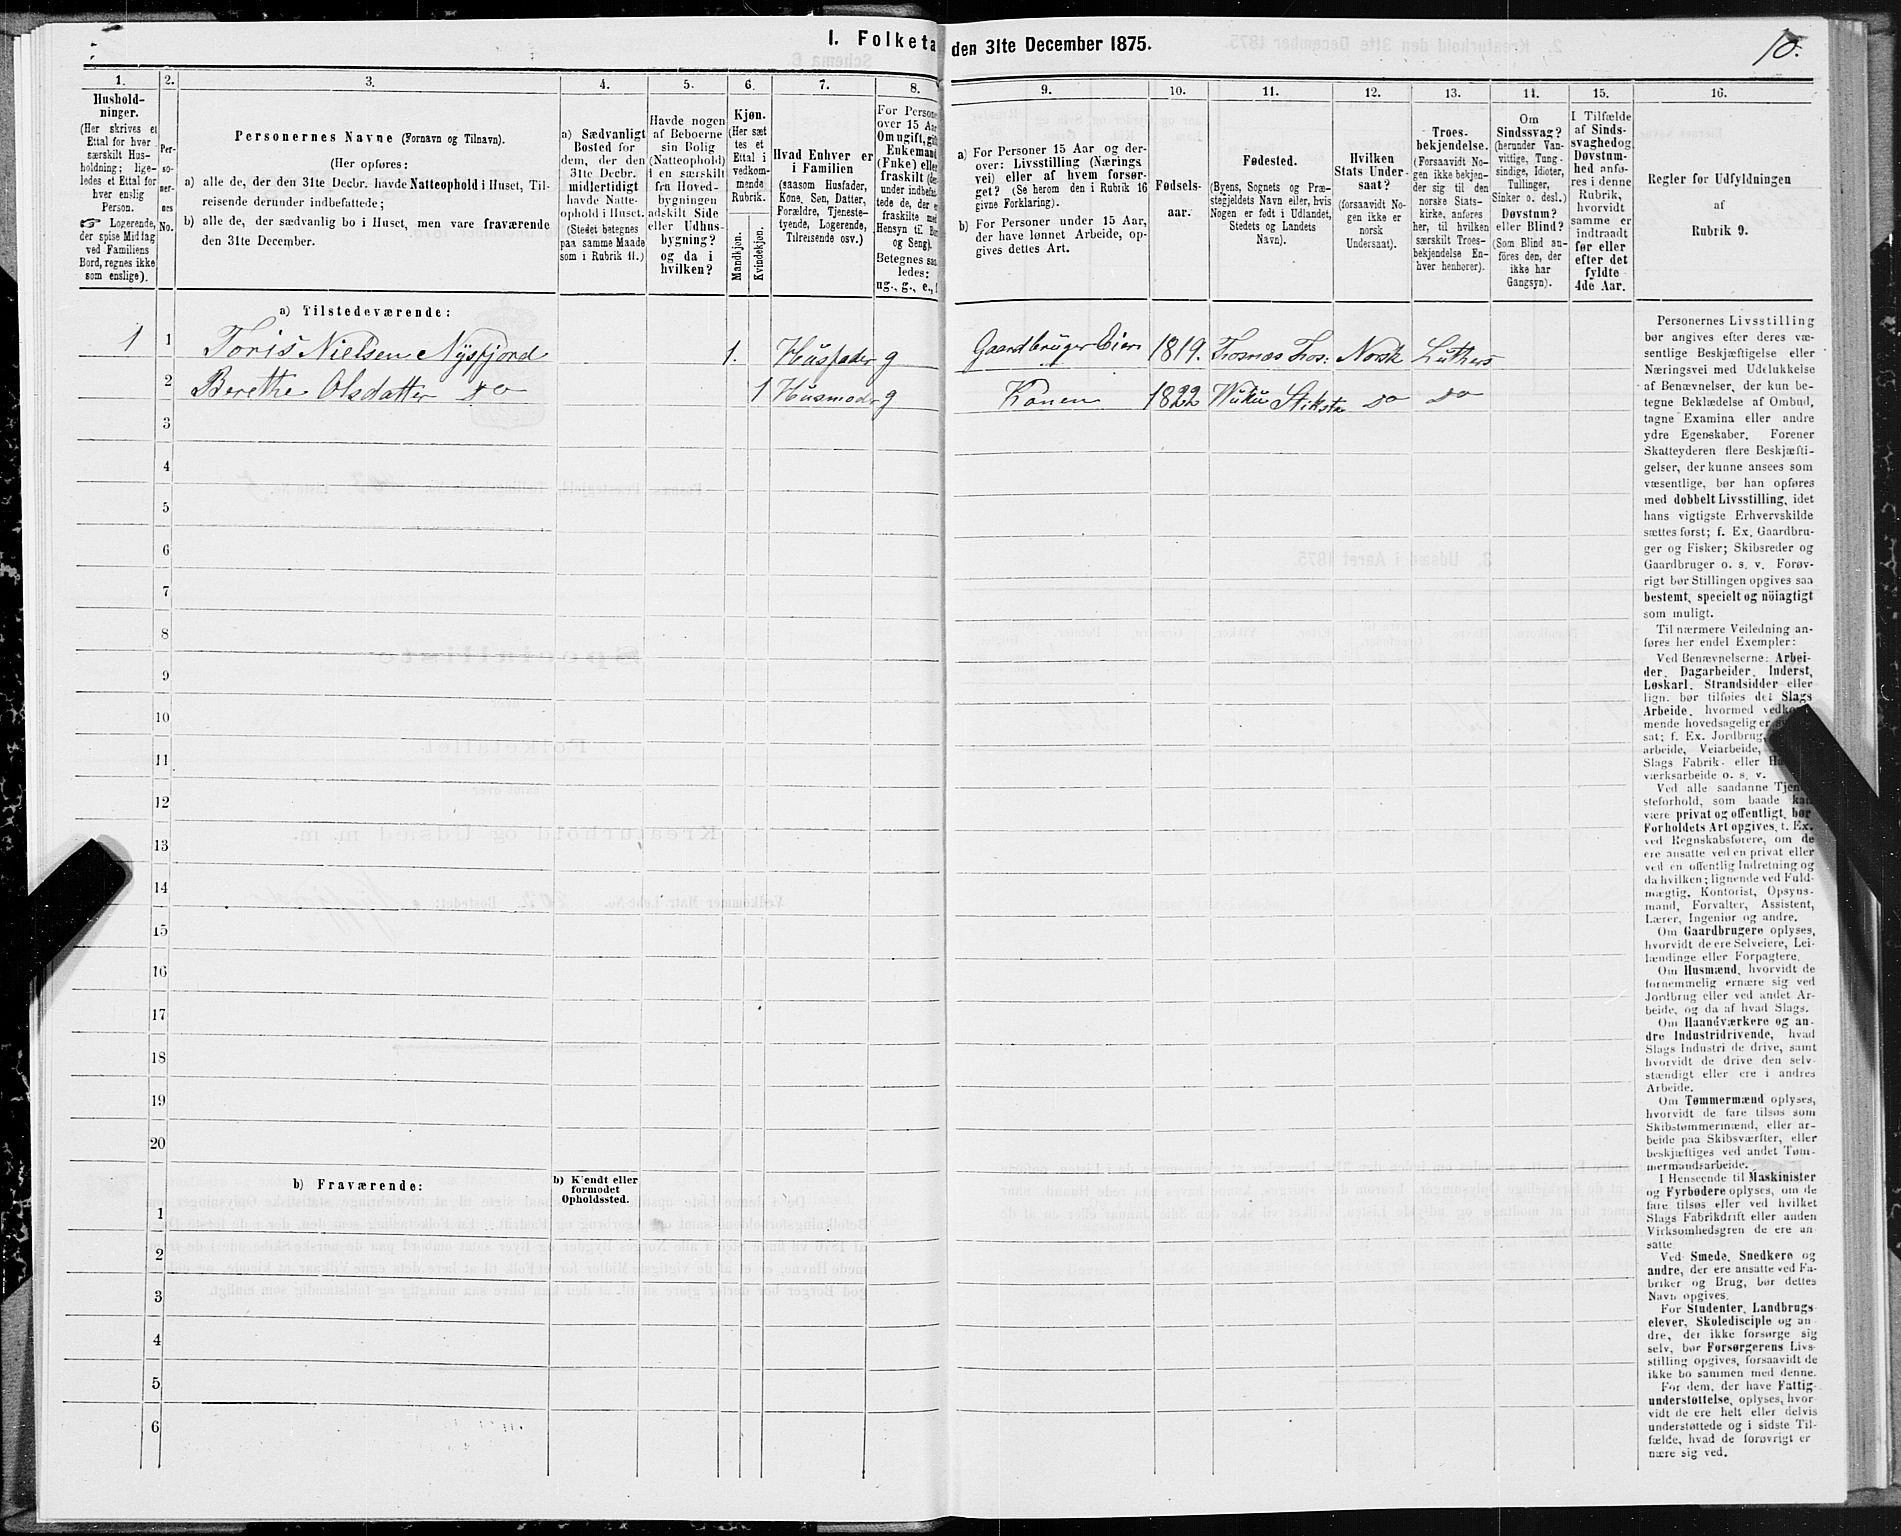 I. Folketa den 31te December 1875.
10.
1.
Hushold-
ninger.
(Her skrives et
Ettal for hver
særskilt Hus-
holdning; lige-
ledes et Ettal for
hver enslig
Person.
☞ Logerende,
der spise Middag
ved Familiens
Bord, regnes ikke
som enslige).
2.
Per-
so-
ner-
nes
No.
3.
Personernes Navne (Fornavn og Tilnavn).
(Her opføres:
a) alle de, der den 31te Decbr. havde Natteophold i Huset, Til-
reisende derunder indbefattede;
b) alle de, der sædvanlig bo i Huset, men vare fraværende
den 31te December.
4.
a) Sædvanligt
Bosted for
dem, der den
31te Decbr.
midlertidigt
havde Natte-
ophold i Huset.
(Stedet betegnes
paa samme Maade
som i Rubrik 11.)
5.
Havde nogen
af Beboerne
sin Bolig
(Natteophold)
i en særskilt
fra Hoved-
bygningen
adskilt Side
eller Udhus-
bygning?
og da i
hvilken?
6.
Kjøn.
(Her sæt
tes et
Ettal i
vedkom-
mende
Rubrik.
Mandkjøn.
Kvindekjøn.
7.
Hvad Enhver er
i Familien
(saasom Husfader,
Kone, Søn, Datter,
Forældre, Tjeneste-
tyende, Logerende,
Tilreisende osv.)
8.
For Persone
over 15 Aar
Om ugift, gift
Enkemand
(Enke) eller
fraskilt (de
under indbefat-
tede de, der e
fraskilte med
Hensyn til Bor
og Seng).
Betegnes saa
ledes:
ug., g., e., f
9.
a) For Personer 15 Aar og der-
over: Livsstilling (Nærings
vei) eller af hvem forsør-
get? (Se herom den i Rubrik 16
givne Forklaring).
b) For Personer under 15 Aar,
der have lønnet Arbeide, op-
gives dettes Art.
10.
Fødsels-
aar.
11.
Fødested.
(Byens, Sognets og Præ-
stegjeldets Navn eller, hvis
Nogen er født i Udlandet,
Stedets og Landets
Navn).
12.
Hvilken
Stats Under-
saat?
(forsaavidt No-
gen ikke er
norsk
Undersaat).
13.
Troes-
bekjendelse.
(Forsaavidt No-
gen ikke bekjen-
der sig til den
norske Stats-
kirke, anføres
her, til hvilken
særskilt Troes-
bekjendelse En-
hver henhører).
14.
Om
Sindssvag?
(herunder Van-
vittige, Tung-
sindige, Idioter,
Tullinger,
Sinker o. desl.)
Døvstum?
eller Blind?
(Som Blind an-
føres den, der
ikke har
Gangsyn).
15.
I Tilfælde
af Sinds-
svaghed og
Døvstum-
hed anfø-
res i denne
Rubrik,
hvorvidt
samme er
indtraadt
før eller
efter det
fyldte
4de Aar.
16.
Regler for Udfyldningen
af
Rubrik 9.
a) Tilstedeværende:
1 1 Toris Nielsen Nysfjord 1. Husfader g Gaardbruger Eier 1819. Fosnæs Fos: Norsk Luthers
2 Berethe Olsdatter do 1 Husmoder g Konen 1822 Wuku Stiksta do do
3
4
5
6
7
8
9
10
11
12
13
14
15
16
17
18
19
20
b) Fraværende:
b) Kjendt eller
formodet
Opholdssted.
1
2
3
4
5
6
Personernes Livsstilling
bør angives efter deres væ-
sentlige Beskjæftigelse eller
Næringsvei med Udelukkelse
af Benævnelser, der kun be-
tegne Beklædelse af Ombud,
tagne Examina eller andre
ydre Egenskaber. Forener
Skatteyderen flere Beskjæfti-
gelser, der kunne ansees som
væsentlige, bør han opføres
med dobbelt Livsstilling, idet
hans vigtigste Erhvervskilde
sættes først; f. Ex. Gaardbru-
ger og Fisker; Skibsreder og
Gaardbruger o. s. v. Forøv-
rigt bør Stillingen opgives saa
bestemt, specielt og nöiagtigt
som muligt.
Til nærmere Veiledning an-
føres her endel Exempler:
Ved Benævnelserne: Arbei-
der, Dagarbeider, Inderst,
Løskarl, Strandsidder eller
lign. bør tilføies det Slags
Arbeide, hvormed vedkom-
mende hovedsagelig er
sat; f. Ex. Jordbrug,
arbeide, Veiarbeide,
Slags Fabrik- eller
værksarbeide o. s. v.
Ved alle saadanne Tjen
steforhold, som baade kan
være privat og offentligt, bør
Forholdets Art opgives, t. Ex.
ved Regnskabsførere, om de
ere ansatte ved en privat eller
ved en offentlig Indretning og
da hvilken; lignende ved Fuld-
mægtig, Kontorist, Opsyns-
mand, Forvalter, Assistent,
Lærer, Ingeniør og andre.
Om Gaardbrugere oplyses,
hvorvidt de ere Selveiere, Lei-
lændinge eller Forpagtere.
Om Husmænd, hvorvidt de
fornemmelig ernære sig ved
Jordbrug eller ved andet Ar-
beide, og da af hvad Slags.
Om Haandværkere og an-
dre Industridrivende, hvad
Slags Industri de drive, samt
hvorvidt de drive den selv-
stændigt eller ere i andres
Arbeide.
Om Tømmermænd oplyses,
hvorvidt de fare tilsøs som
Skibstømmermænd, eller ar-
beide paa Skibsværfter, eller
beskjæftiges ved andet Tøm-
mermandsarbeide.
I Henseende til Maskinister
og Fyrbødere oplyses, om de
fare tilsøs eller ved hvilket
Slags Fabrikdrift eller anden
Virksomhedsgren de ere an-
satte
Ved Smede, Snedkere og
andre, der ere ansatte ved Fa-
briker og Brug, bør dettes
Navn opgives.
For Studenter, Landbrugs-
elever, Skoledisciple og an-
dre, der ikke forsørge sig
selv, bør Forsørgerens Livs-
stilling opgives, forsaavidt de
ikke bo sammen med denne.
For dem, der have Fattig-
understøttelse, oplyses, hvor-
vidt de ere helt eller delvis
understøttede og i sidste Til-
fælde, hvad de forøvrigt er
nære sig ved.